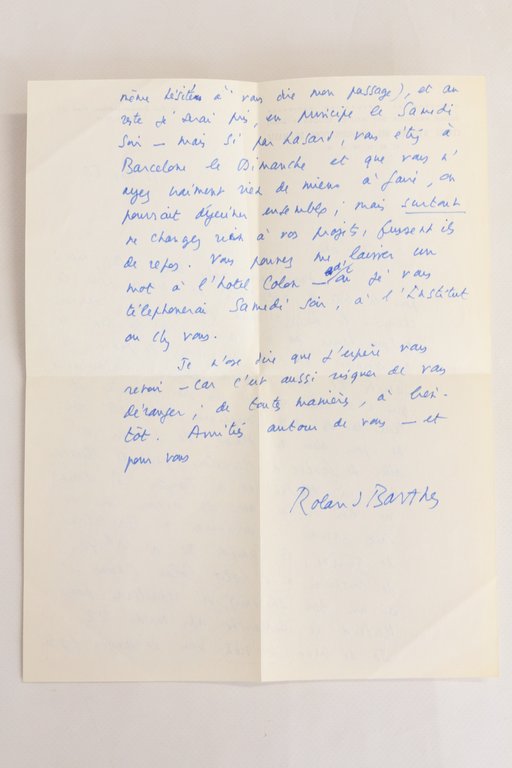 même hésité à vous dire mon passage), et au
reste je serai pris, en principe le Samedi
soir – mais si par hasard, vous étiez à
Barcelone le Dimanche et que vous n'
ayez vraiment rien de mieux à faire, on
pourrait déjeuner ensemble; mais surtout
ne changez rien à vos projets, fussent-ils
de repos. Vous pouvez me laisser un
mot à l'hotel Colon – où je vous
téléphonerai Samedi soir, à l'Institut
ou chez vous.
Je n'ose dire que j'espère vous
revoir – car c'est aussi risquer de vous
déranger; de toutes manières, à bien-
tôt. Amitiés autour de vous – et
pour vous
Roland Barthes